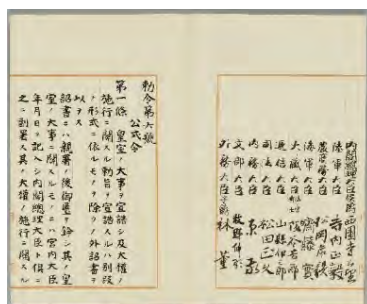 內閣總理大臣侯爵西園寺公望
陸軍大臣 寺内正毅
農商務大臣 松岡康毅
海軍大臣 齋藤實
大藏大臣 阪谷芳郎
遞信大臣 山縣伊三郎
司法大臣 松田正久
内務大臣 原敬
文部大臣 牧野伸顯
外務大臣子爵林董
勅令第六號
公式令
第一條 皇室ノ大事ヲ宣誥シ及大權ノ
施行ニ關スル勅旨ヲ宣誥スルハ別段
ノ形式ニ依ルモノヲ除クノ外詔書ヲ
以テス
詔書ニハ親署ノ後御璽ヲ鈐シ其ノ皇
室ノ大事ニ關スルモノニハ宮內大臣
年月日ヲ記入シ內閣總理大臣ト俱ニ
之ニ副署ス其ノ大權ノ施行ニ關スル